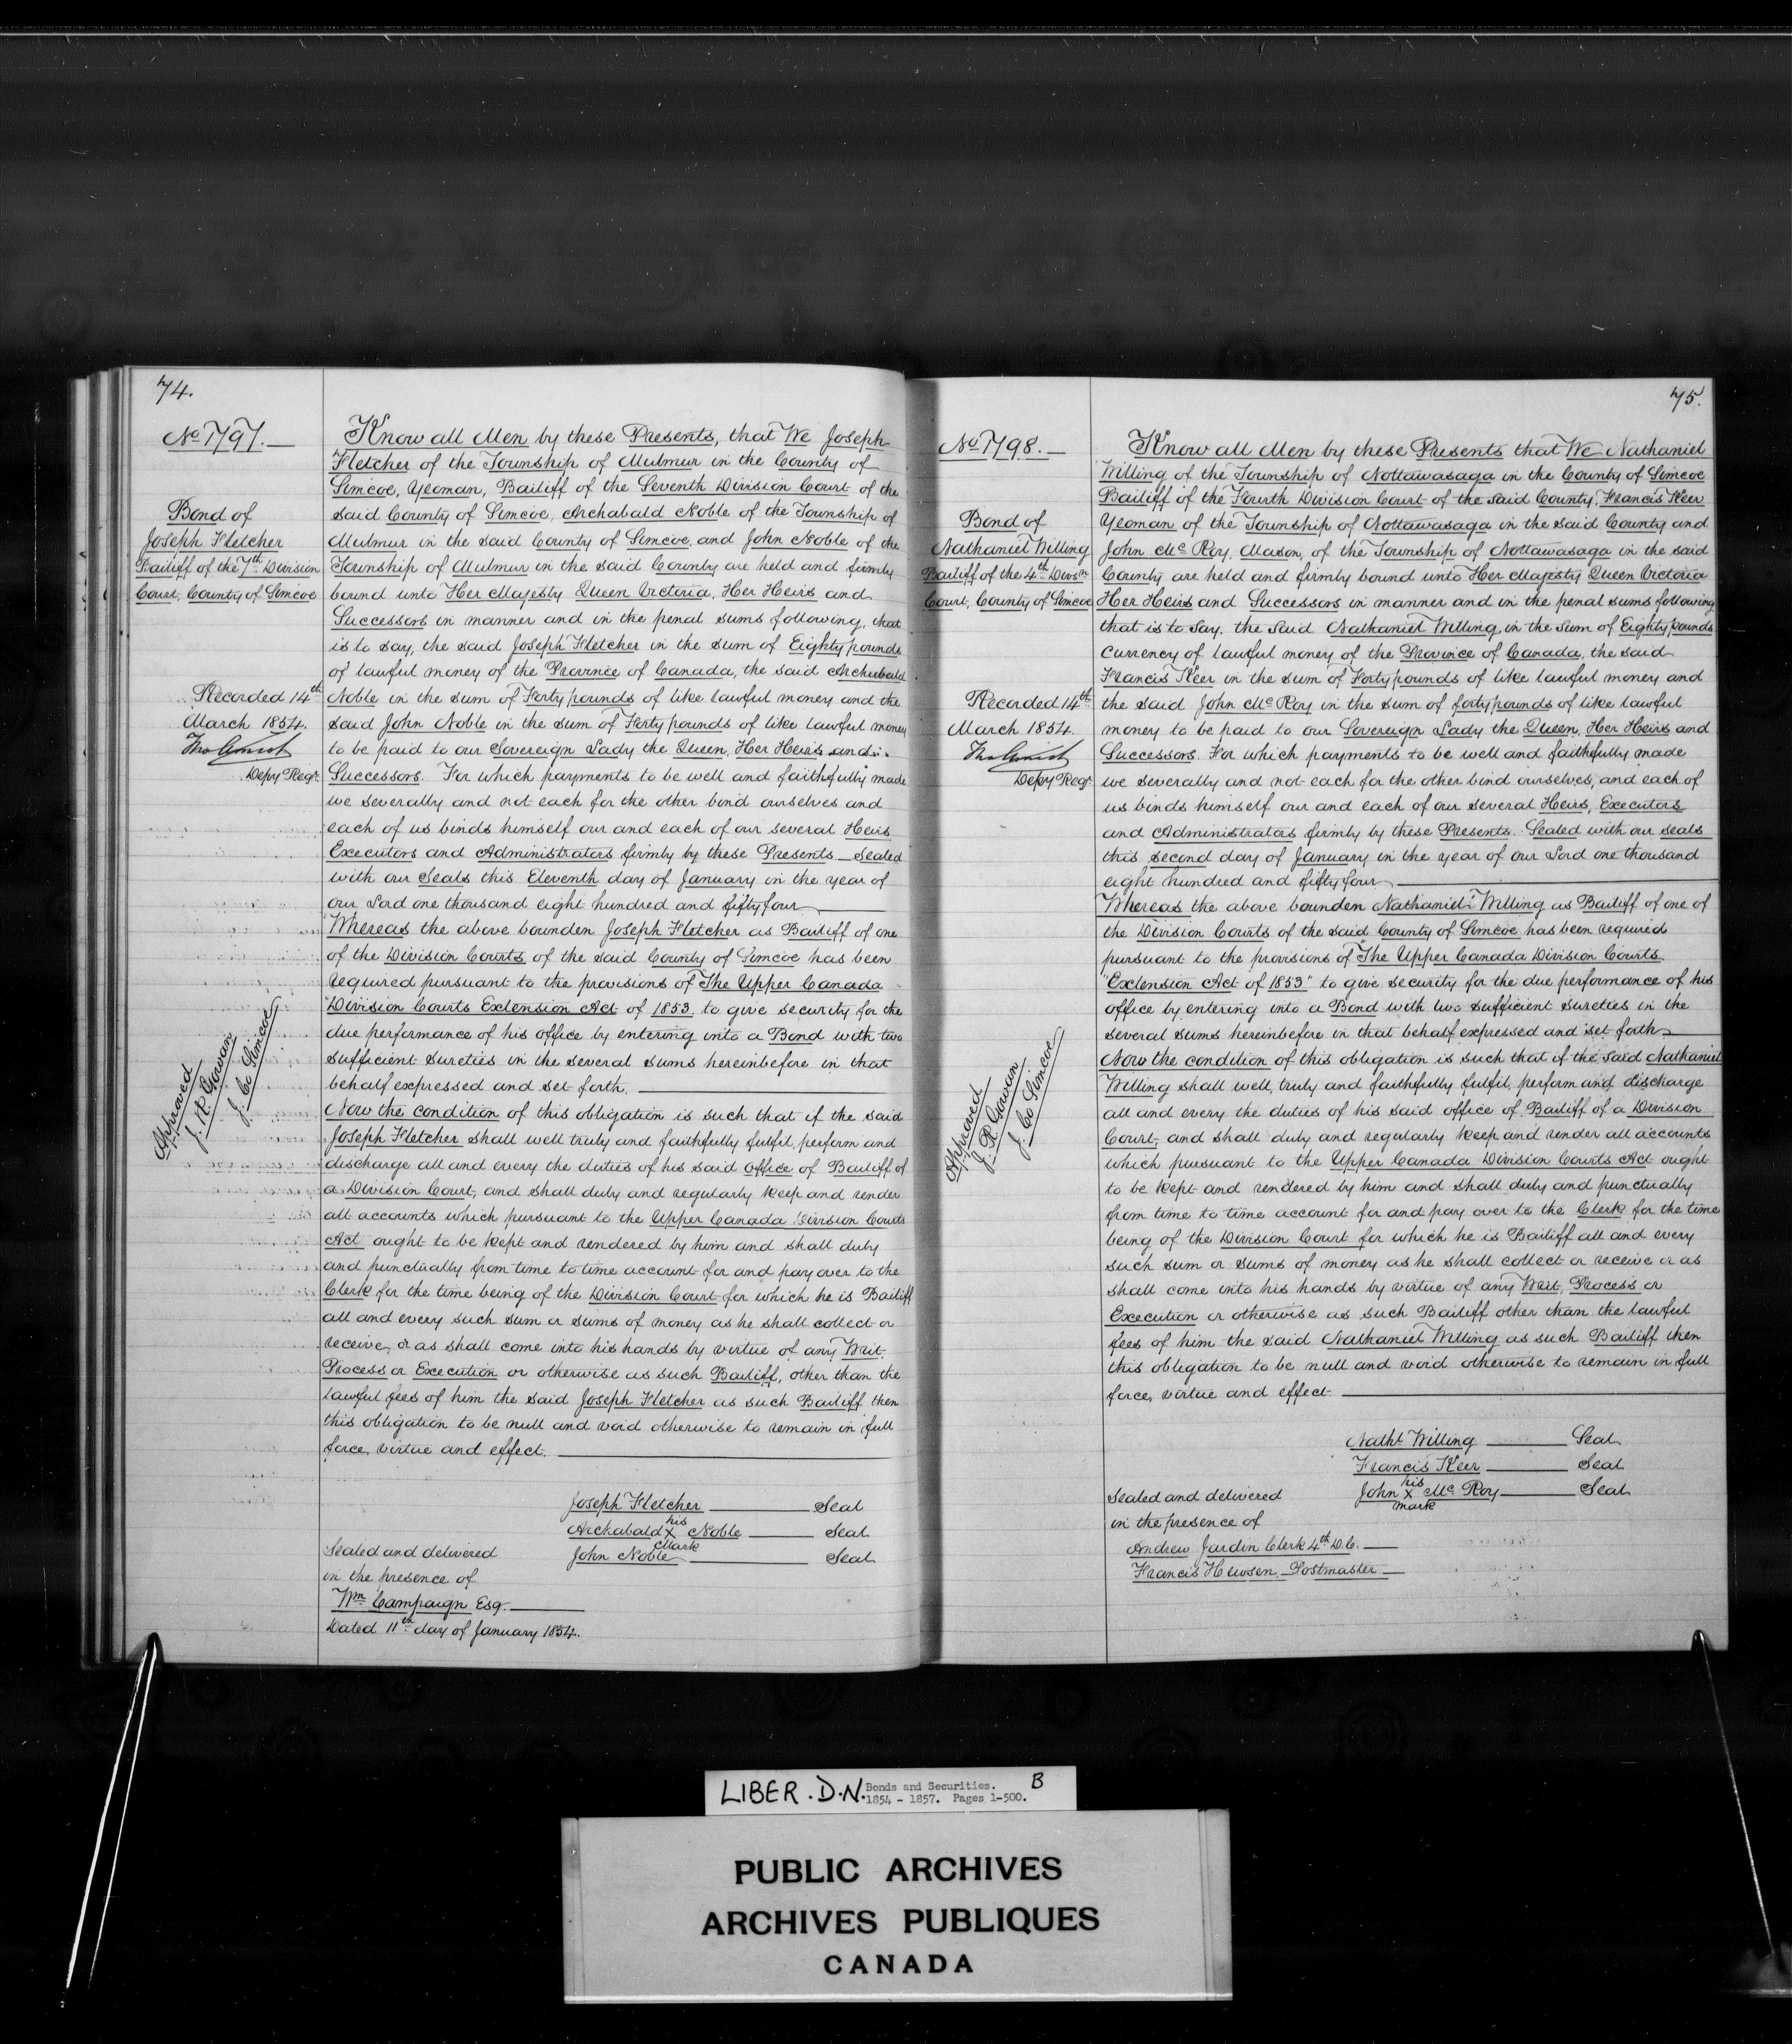 74.
No 1797.
Bond of
Joseph Fletcher
Bailiff of the 7th Division
Court, County of Simcoe
Recorded 14th
March 1854.
Depy Regr.
Approved
J. R. Gowan
J. Co Simcoe
Know all Men by these Presents, that We Joseph
Fletcher of the Township of Mulmur in the County of
Simcoe, Yeoman, Bailiff of the Seventh Division Court of the
said County of Simcoe, Archabald Noble of the Township of
Mulmur in the said County of Simcoe, and John Noble of the
Township of Mulmur in the said County are held and firmly
bound unto Her Majesty Queen Victoria, Her Heirs and
Successors in manner and in the penal sums following, that
is to say, the said Joseph Fletcher in the sum of Eighty pounds
of lawful money of the Province of Canada, the said Archabald
Noble in the sum of Forty pounds of like lawful money and the
said John Noble in the sum of Forty pounds of like lawful money
to be paid to our Sovereign Lady the Queen, Her Heirs and
Successors. For which payments to be well and faithfully made
we severally and not each for the other bind ourselves and
each of us binds himself our and each of our several Heirs
Executors and Administrators firmly by these Presents Sealed
with our Seals this Eleventh day of January in the year of
our Lord one thousand eight hundred and fifty four
Whereas the above bounden Joseph Fletcher as Bailiff of one
of the Division Courts of the said County of Simcoe has been
required pursuant to the provisions of "The Upper Canada
"Division Courts Extension Act of 1853 to give security for the
due performance of his office by entering into a Bond with two
sufficient sureties in the several sums hereinbefore in that
behalf expressed and set forth.
Now the condition of this obligation is such that if the said
Joseph Fletcher shall well truly and faithfully fulfil, perform and
discharge all and every the duties of his said office of Bailiff of
a Division Court, and shall duly and regularly keep and render
all accounts which pursuant to the Upper Canada Division Courts
Act ought to be kept and rendered by him and shall duly
and punctually from time to time account for and pay over to the
Clerk for the time being of the Division Court for which he is Bailiff
all and every such sum or sums of money as he shall collect or
receive, or as shall come into his hands by virtue of any Writ,
Process or Execution or otherwise as such Bailiff, other than the
lawful fees of him the said Joseph Fletcher as such Bailiff then
this obligation to be null and void otherwise to remain in full
force, virtue and effect.
Joseph Fletcher Seal
his
Archabald X Noble Seal
Mark
John Noble Seal
Sealed and delivered
in the presence of
Wm Campaign Esq.
Dated 11th day of January 1854.
75.
No 1798.
Bond of
Nathaniel Willing
Bailiff of the 4th Divsn
Court, County of Simcoe
Recorded 14th
March 1854.
Depy Regr.
Approved
J. R. Gowan
J. Co Simcoe
Know all Men by these Presents that We Nathaniel
Willing of the Township of Nottawasaga in the County of Simcoe
Bailiff of the Fourth Division Court of the said County, Francis Keer
Yeoman of the Township of Nottawasaga in the said County and
John Mc Roy, Mason, of the Township of Nottawasaga in the said
County are held and firmly bound unto Her Majesty Queen Victoria
Her Heirs and Successors in manner and in the penal sums following
that is to say, the said Nathaniel Willing in the sum of Eighty pounds
currency of lawful money of the Province of Canada, the said
Francis Keer in the sum of Forty pounds of like lawful money and
the said John Mc Roy in the sum of forty pounds of like lawful
money to be paid to our Sovereign Lady the Queen, Her Heirs and
Successors. For which payments to be well and faithfully made
we severally and not each for the other bind ourselves, and each of
us binds himself our and each of our several Heirs, Executors
and Administrators firmly by these Presents. Sealed with our seals
this second day of January in the year of our Lord one thousand
eight hundred and fifty four
Whereas the above bounden Nathaniel Willing as Bailiff of one of
the Division Courts of the said County of Simcoe has been required
pursuant to the provisions of "The Upper Canada Division Courts
"Extension Act of 1853" to give security for the due performance of his
office by entering into a Bond with two sufficient sureties in the
several sums hereinbefore in that behalf expressed and set forth
Now the condition of this obligation is such that if the said Nathaniel
Willing shall well, truly and faithfully fulfil, perform and discharge
all and every the duties of his said office of Bailiff of a Division
Court, and shall duly and regularly keep and render all accounts
which pursuant to the Upper Canada Division Courts Act ought
to be kept and rendered by him and shall duly and punctually
from time to time account for and pay over to the Clerk for the time
being of the Division Court for which he is Bailiff all and every
such sum or sums of money as he shall collect or receive or as
shall come into his hands by virtue of any Writ, Process or
Execution or otherwise as such Bailiff other than the lawful
fees of him the said Nathaniel Willing as such Bailiff then
this obligation to be null and void otherwise to remain in full
force, virtue and effect
Nathl Willing Seal
Francis Keer Seal
his
John X Mc Roy Seal
mark
Sealed and delivered
in the presence of
Andrew Jardin Clerk 4th D.C.
Francis Hewson, Postmaster
LIBER. D.N. Bonds and Securities. B
1854 - 1857. Pages 1-500.
PUBLIC ARCHIVES
ARCHIVES PUBLIQUES
CANADA